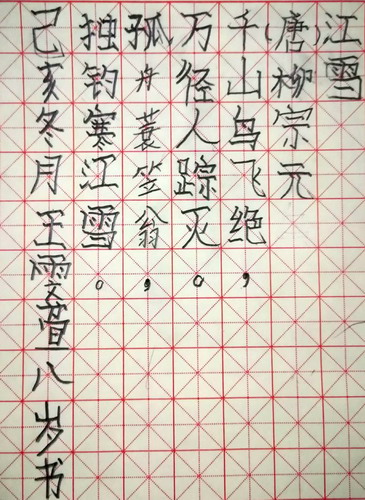 江雪
(唐)柳宗元
千山鸟飞绝，
万径人踪灭。
孤舟蓑笠翁，
独钓寒江雪。
己亥冬月王雯萱八岁书